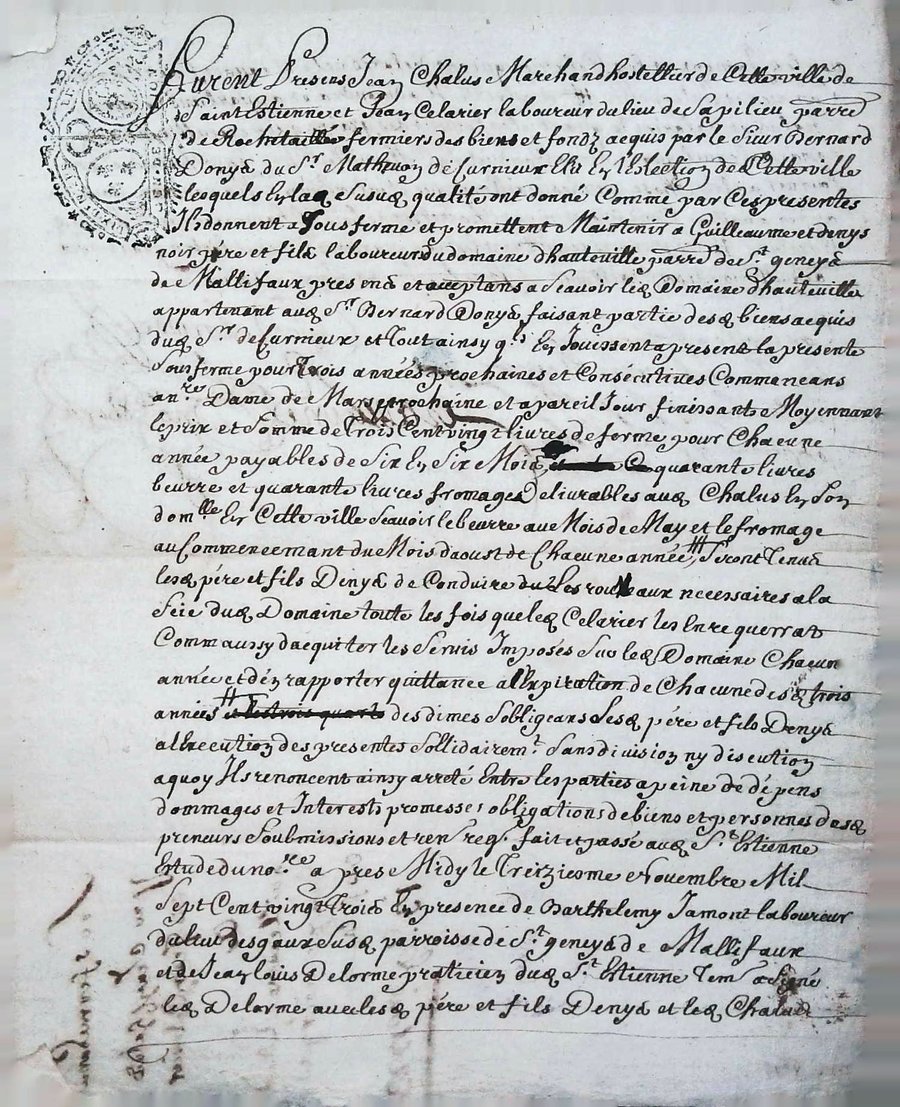 Furent Presens Jean Chalus Marchand hostellier de Cette ville de
Saint Estienne et Jean Celarier laboureur du lieu de Sapilieu parre
de Rochetaillée fermiers des biens et fondz acquis par le Sieur Bernard
Donys du Sr Matheuon de Curnieux Elû En l'Eslection de Cette ville
lesquels En lad Susd qualité ont donné Comme par Ces presentes
Ils donnent a Sous ferme et promettent Maintenir a Guilleaume et denys
noir pére et fils laboureurs du domaine dhauteville parre de St geneys
de Mallifaux presens et acceptans a Scavoir led Domaine dhauteville
appartenant aud Sr Bernard Donys faisant partie desd biens acquis
dud Sr de Curnieux et Tout ainsy qls En Jouissent a present la presente
Sous ferme pour Trois années prochaines et Consécutives Commencans
a nre Dame de Mars prochaine et a pareil Jour finissants Moyennant
le prix et Somme de Trois Cent vingt livres de ferme pour Chacune
année payables de Six En Six Mois quarante livres
beurre et quarante livres fromages Delivrables aud Chalus En Son
domlle En Cette ville Scavoir le beurre au Mois de May et le fromage
au Commencemant du Mois daoust de Chacune année Seront Tenus
lesd pére et fils Denys de Conduire les rouleaux necessaires a la
Scie dud Domaine toute les fois que led Celarier les En requerrat
Comm aussy dacquitter les Servis Imposés Sur led Domaine Chacun
année et d'en rapporter quittance a l'Expiration de Chacune desd trois
années et les trois quarts des dimes Sobligeans Lesd pére et fils Denys
a l'execution des presentes Sollidairemt Sans division ny discution
a quoy Ils renoncent ainsy arreté Entre les parties a peine de dépens
dommages et Interests promesses obligations de biens et personnes desd
preneurs Soubmissions et renr regr fait et passé aud St Estienne
Estude du nore a pres Midy le Treizieome Novembre Mil
Sept Cent vingt Trois En presence de Barthelemy Jamont laboureur
du lieu desgaux Susd parroisse de St geneys de Mallifaux
et de Jean louis Delorme praticien dud St Estienne Tem a Signé
led Delorme avec lesd pére et fils Denys et led Chalus